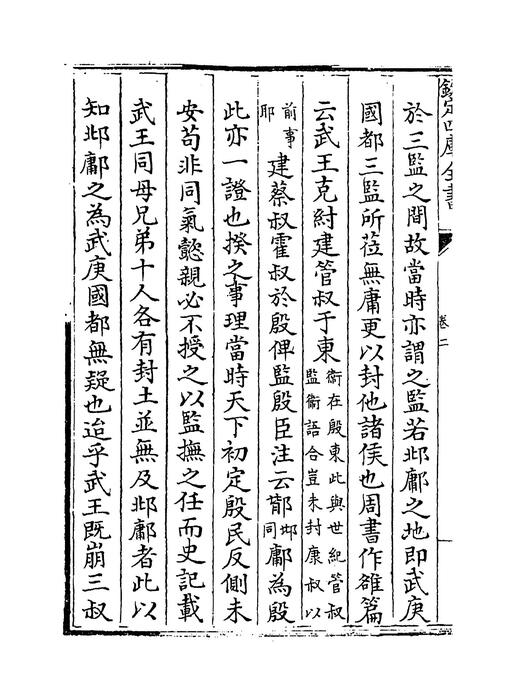 欽定四庫全書
卷二
於三監之間故當時亦謂之監若邶鄘之地即武庚
國都三監所莅無庸更以封他諸侯也周書作雒篇
云武王克紂建管叔于東衞在殷東此與世紀管叔監衞語合豈未封康叔以
前事耶建蔡叔霍叔於殷俾監殷臣注云鄁邶同鄘為殷
此亦一證也揆之事理當時天下初定殷民反側未
安苟非同氣懿親必不授之以監撫之任而史記載
武王同母兄弟十人各有封土並無及邶鄘者此以
知邶鄘之為武庚國都無疑也迨乎武王既崩三叔